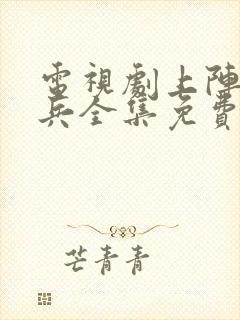 電視劇上陣
兵全集免費
芒青青